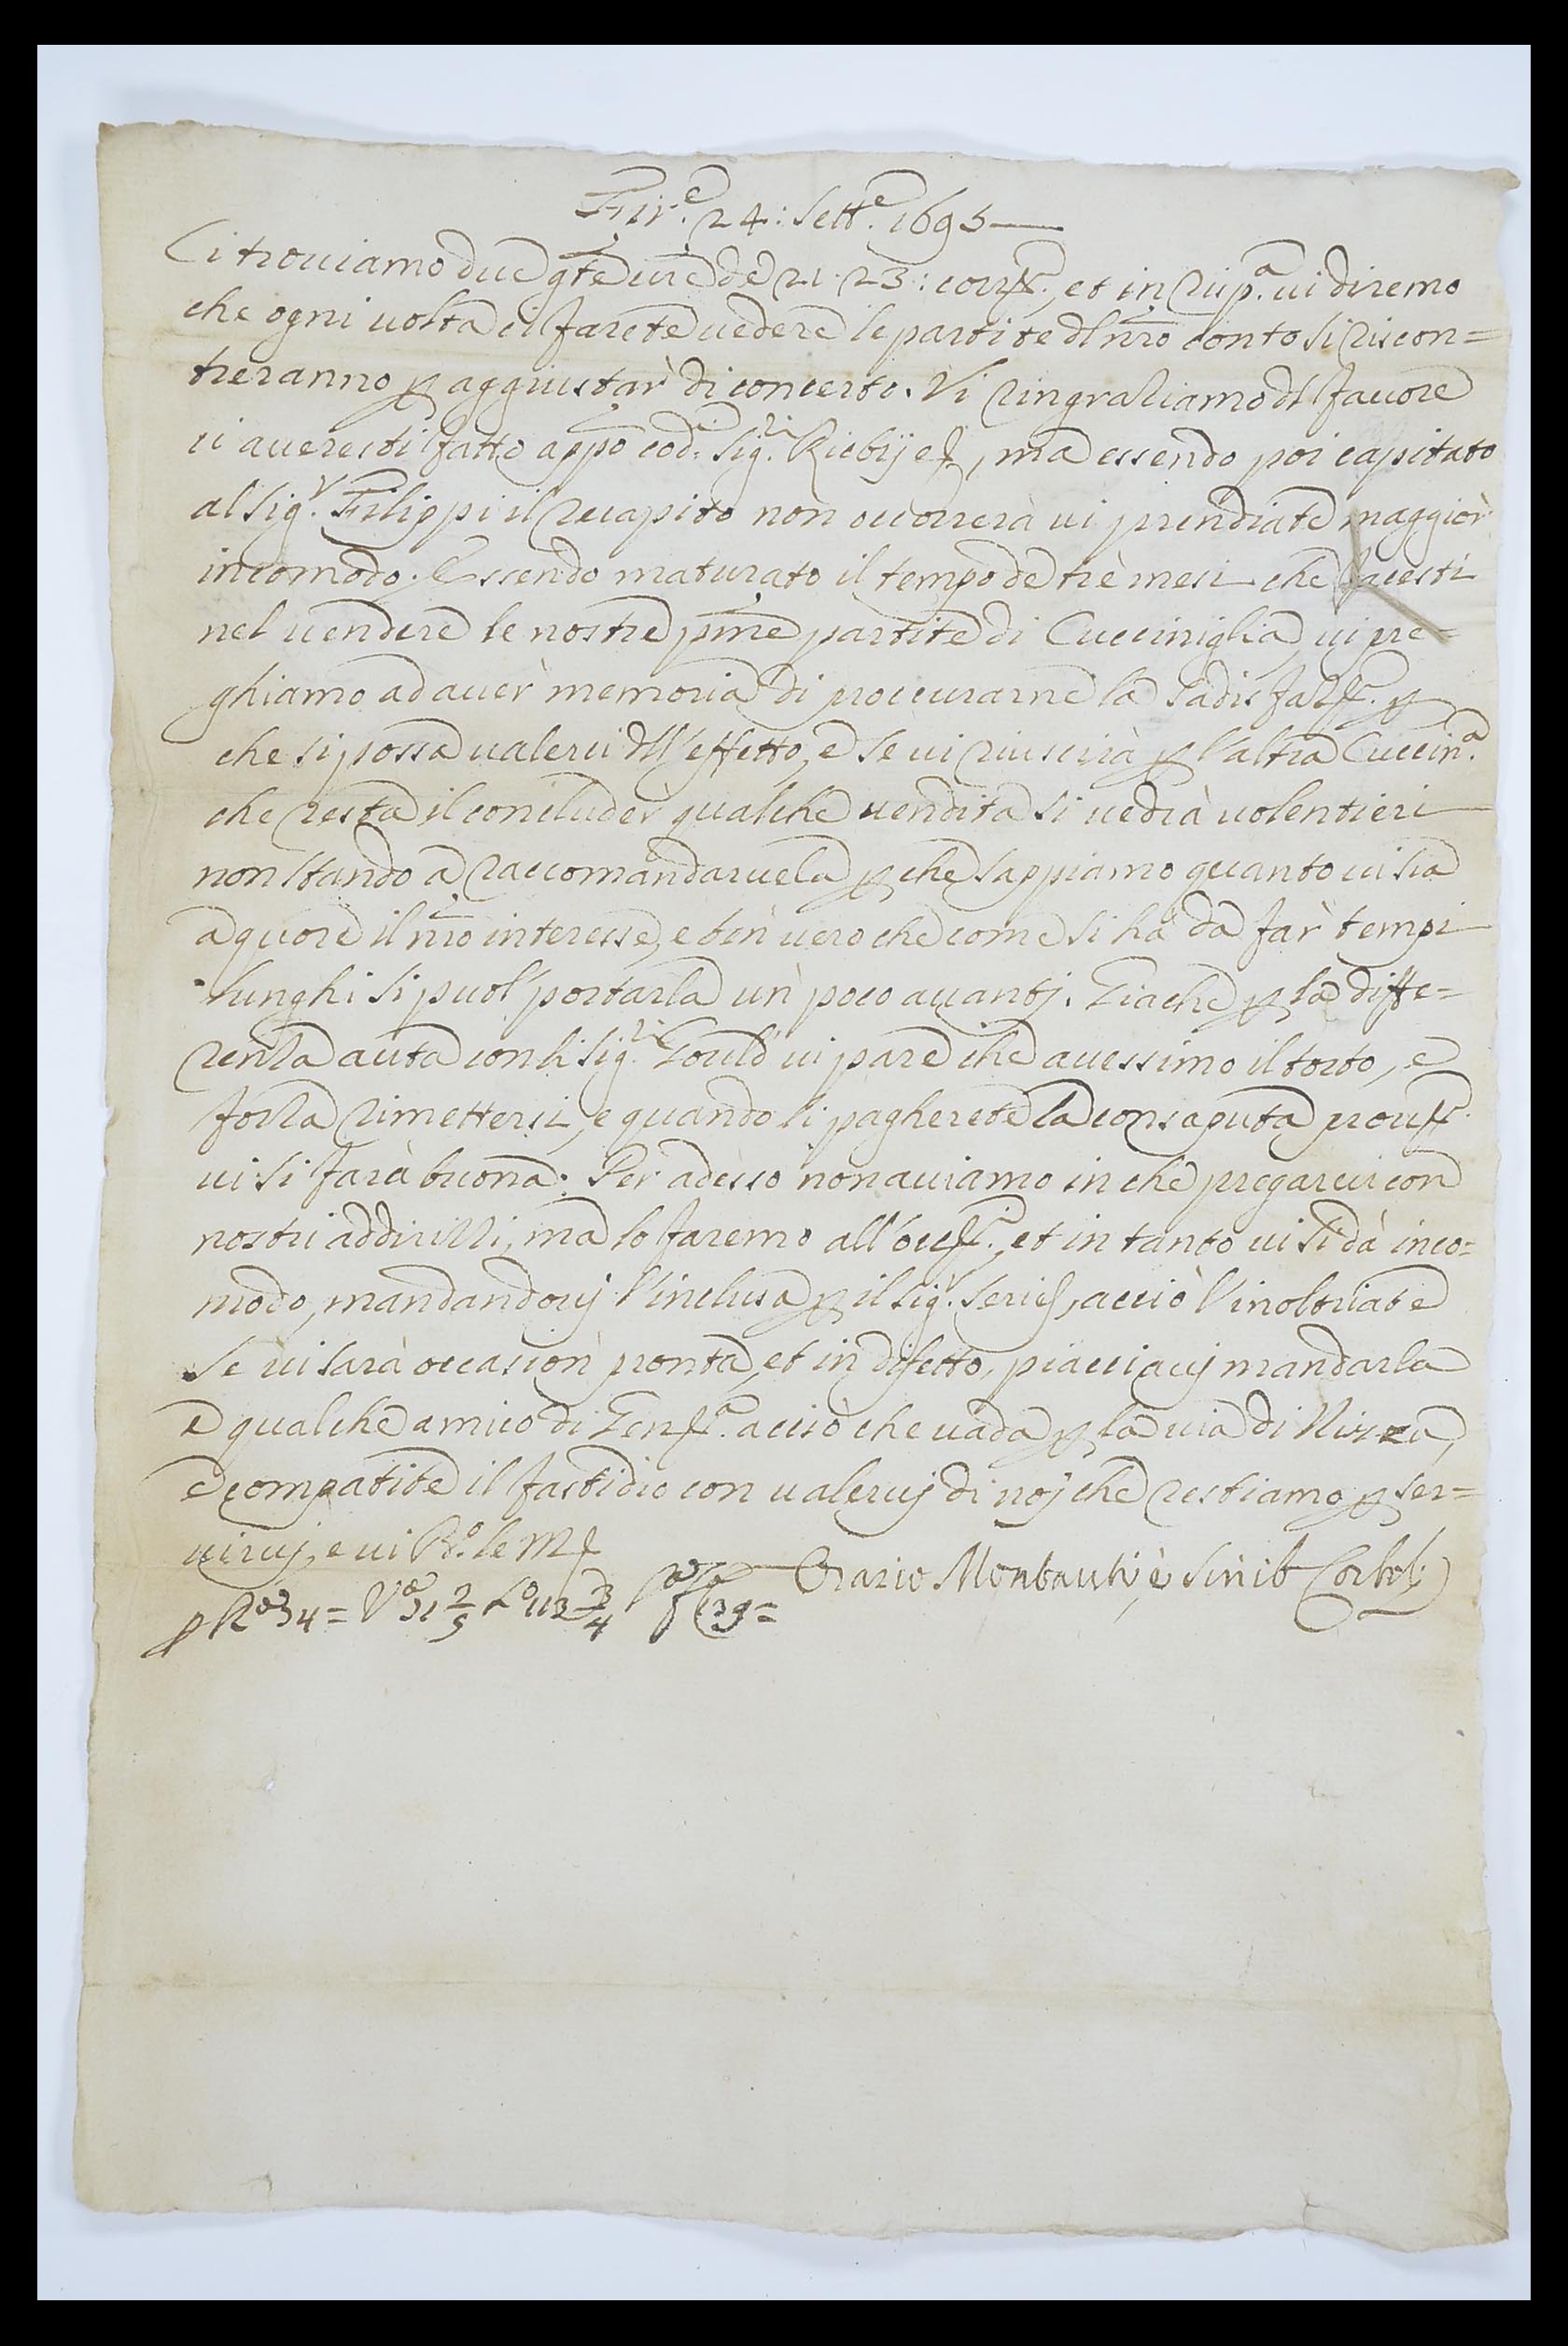 Fir.e 24: Sett.e 1695
Ci trouiamo due gte ure de 21. 23: corr.te, et in risp.a ui diremo
che ogni uolta ci farete uedere le partite dl nro conto si riscon=
treranno p aggiustar di concerto. Vi ringraziamo dl fauore
ci aueresti fatto appo cod.i Sig.ri, ma essendo poi capitato
al Sig.r Filippi il recapito non occorrerà ui prendiate maggior
incomodo. Essendo maturato il tempo de tre mesi che facesti
nel uendere le nostre pme partite di Cucciniglia, ui pre=
ghiamo ad auer memoria di proccurarne la sadisfaz.e p
che si possa ualerci dll'effetto, e se ui riuscirà p l'altra Cuccin.a
che resta il concluder qualche uendita si uedrà uolentieri
non stando a raccomandaruela p che sappiamo quanto ui sia
a quore il nro interesse, e ben uero che come si ha da far tempi
lunghi si puol portarla un poco auantj. Giache p la diffe=
renza auta con li Sig.ri Gould ui pare che auessimo il torto, e
forza rimettersi, e quando li pagherete la consaputa prouis.e
ui si farà buona. Per adesso non auiamo in che pregarui con
nostri addirizzi, ma lo faremo all'occ.ni, et in tanto ui si dà inco=
modo, mandandouj l'inclusa p il Sig.r, acciò l'inoltriate
se ui sarà occasion pronta, et in difetto, piacciauj mandarla
a qualche amico di Gen.a acciò che uada p la uia di Nizza,
e compatite il fastidio con ualeruj di noj che restiamo p ser=
uiruj, e ui B.o le M
Orazio Montauti, e Sinib Corbolj